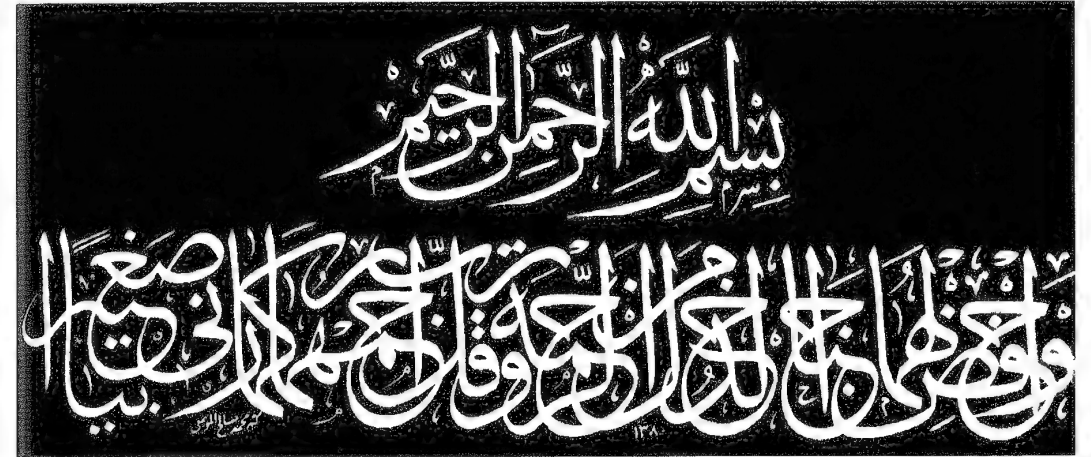 بِسْمِ اللَّهِ الرَّحْمَنِ الرَّحِيمِ
وَاخْفِضْ لَهُمَا جَنَاحَ الذُّلِّ مِنَ الرَّحْمَةِ وَقُل رَّبِّ ارْحَمْهُمَا كَمَا رَبَّيَانِي صَغِيرًا